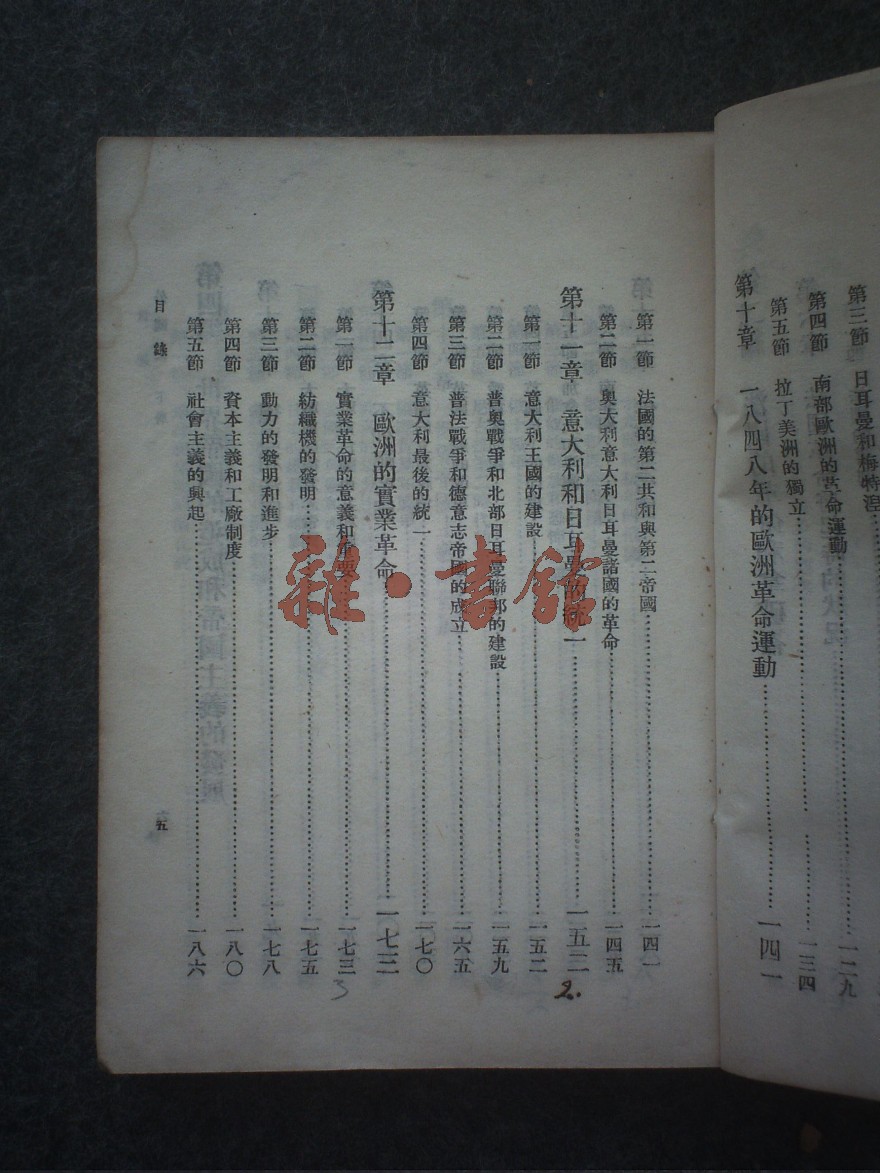 第三節 日耳曼和梅特涅……一二九
第四節 南部歐洲的革命運動……一三四
第五節 拉丁美洲的獨立……
第十章 一八四八年的歐洲革命運動……一四一
第一節 法國的第二共和與第二帝國……一四一
第二節 奧大利意大利日耳曼諸國的革命……一四五
第十一章 意大利和日耳曼的統一……一五二
第一節 意大利王國的建設……一五二
第二節 普奧戰爭和北部日耳曼聯邦的建設……一五九
第三節 普法戰爭和德意志帝國的成立……一六五
第四節 意大利最後的統一……一七〇
第十二章 歐洲的實業革命……一七三
第一節 實業革命的意義和重要……一七三
第二節 紡織機的發明……一七五
第三節 動力的發明和進步……一七八
第四節 資本主義和工廠制度……一八〇
第五節 社會主義的興起……一八六
目錄
五
2.
3
雜·書館